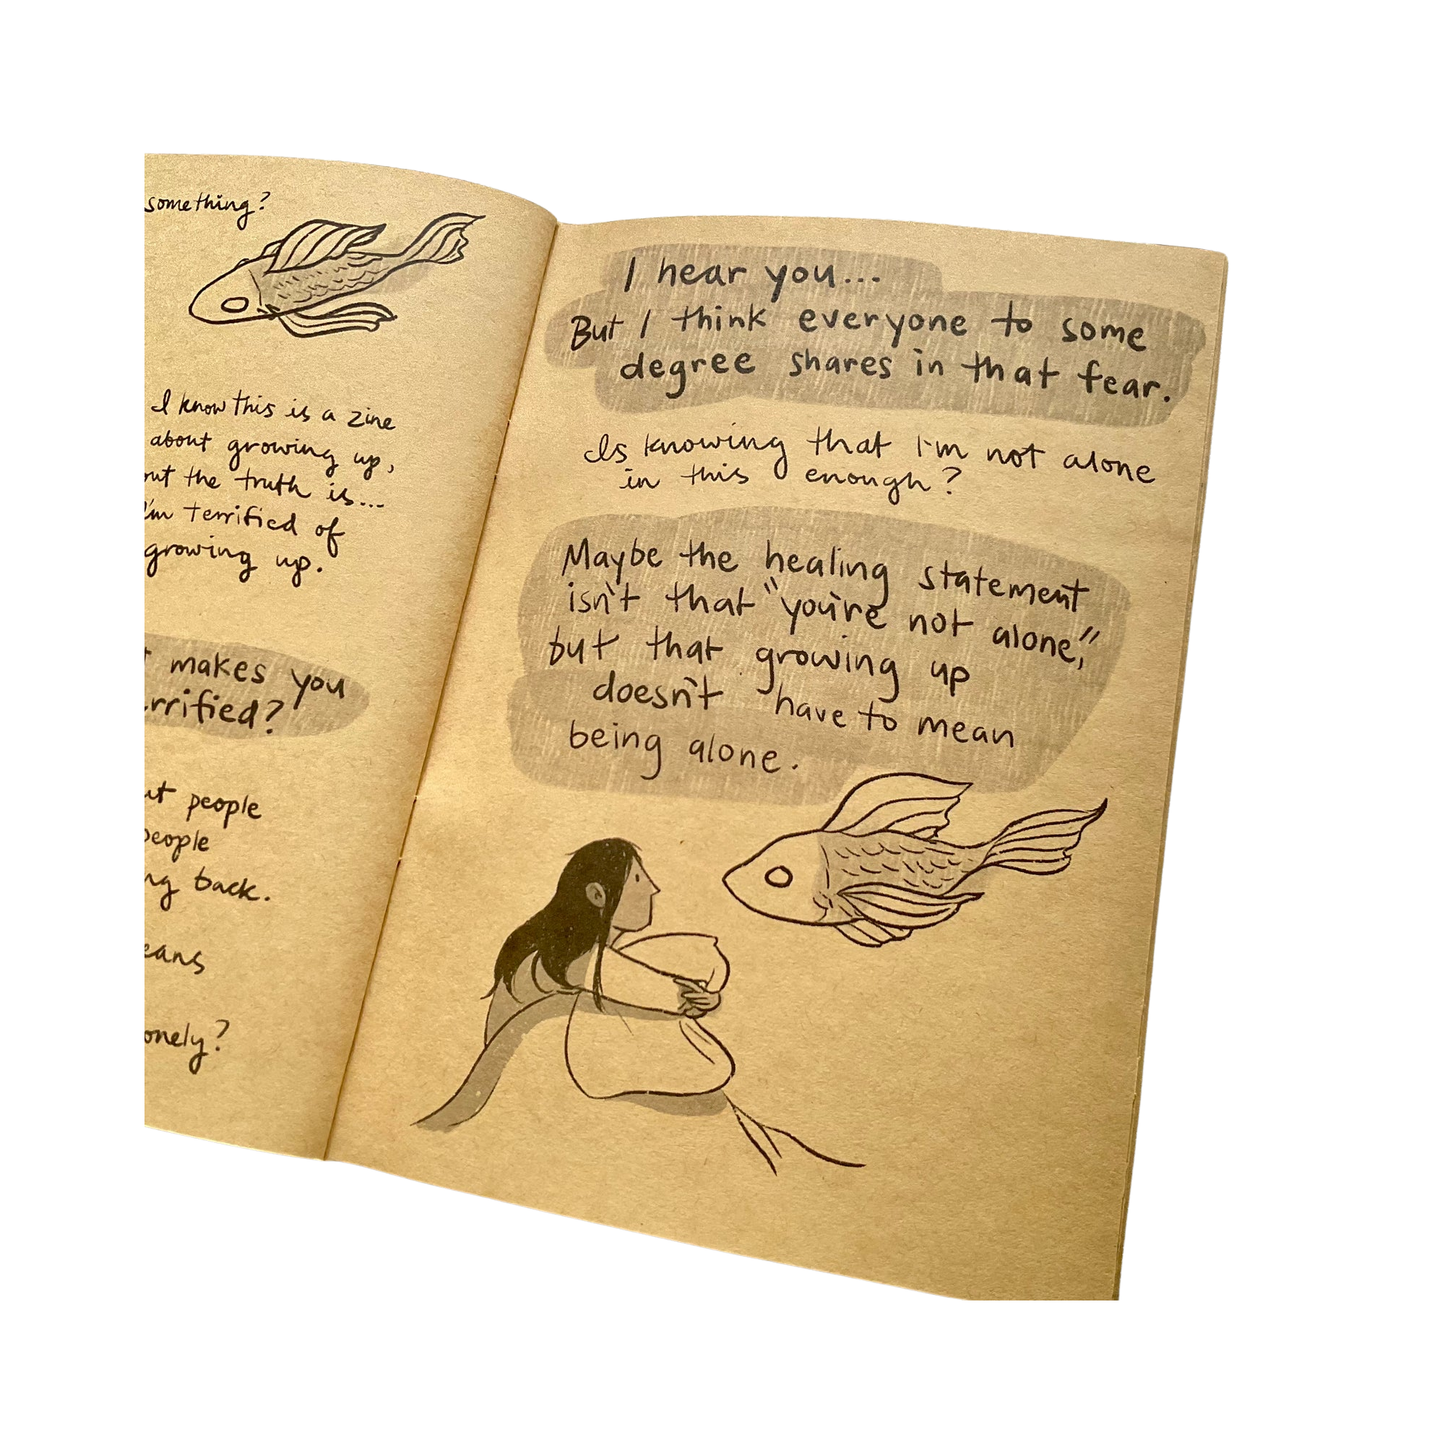 something?
I know this is a zine
about growing up,
the truth is...
I'm terrified of
growing up.
makes you
people
people
back.
I hear you...
But I think everyone to some
degree shares in that fear.
Is knowing that I'm not alone
in this enough?
Maybe the healing statement
isn't that "you're not alone,"
but that growing up
doesn't have to mean
being alone.